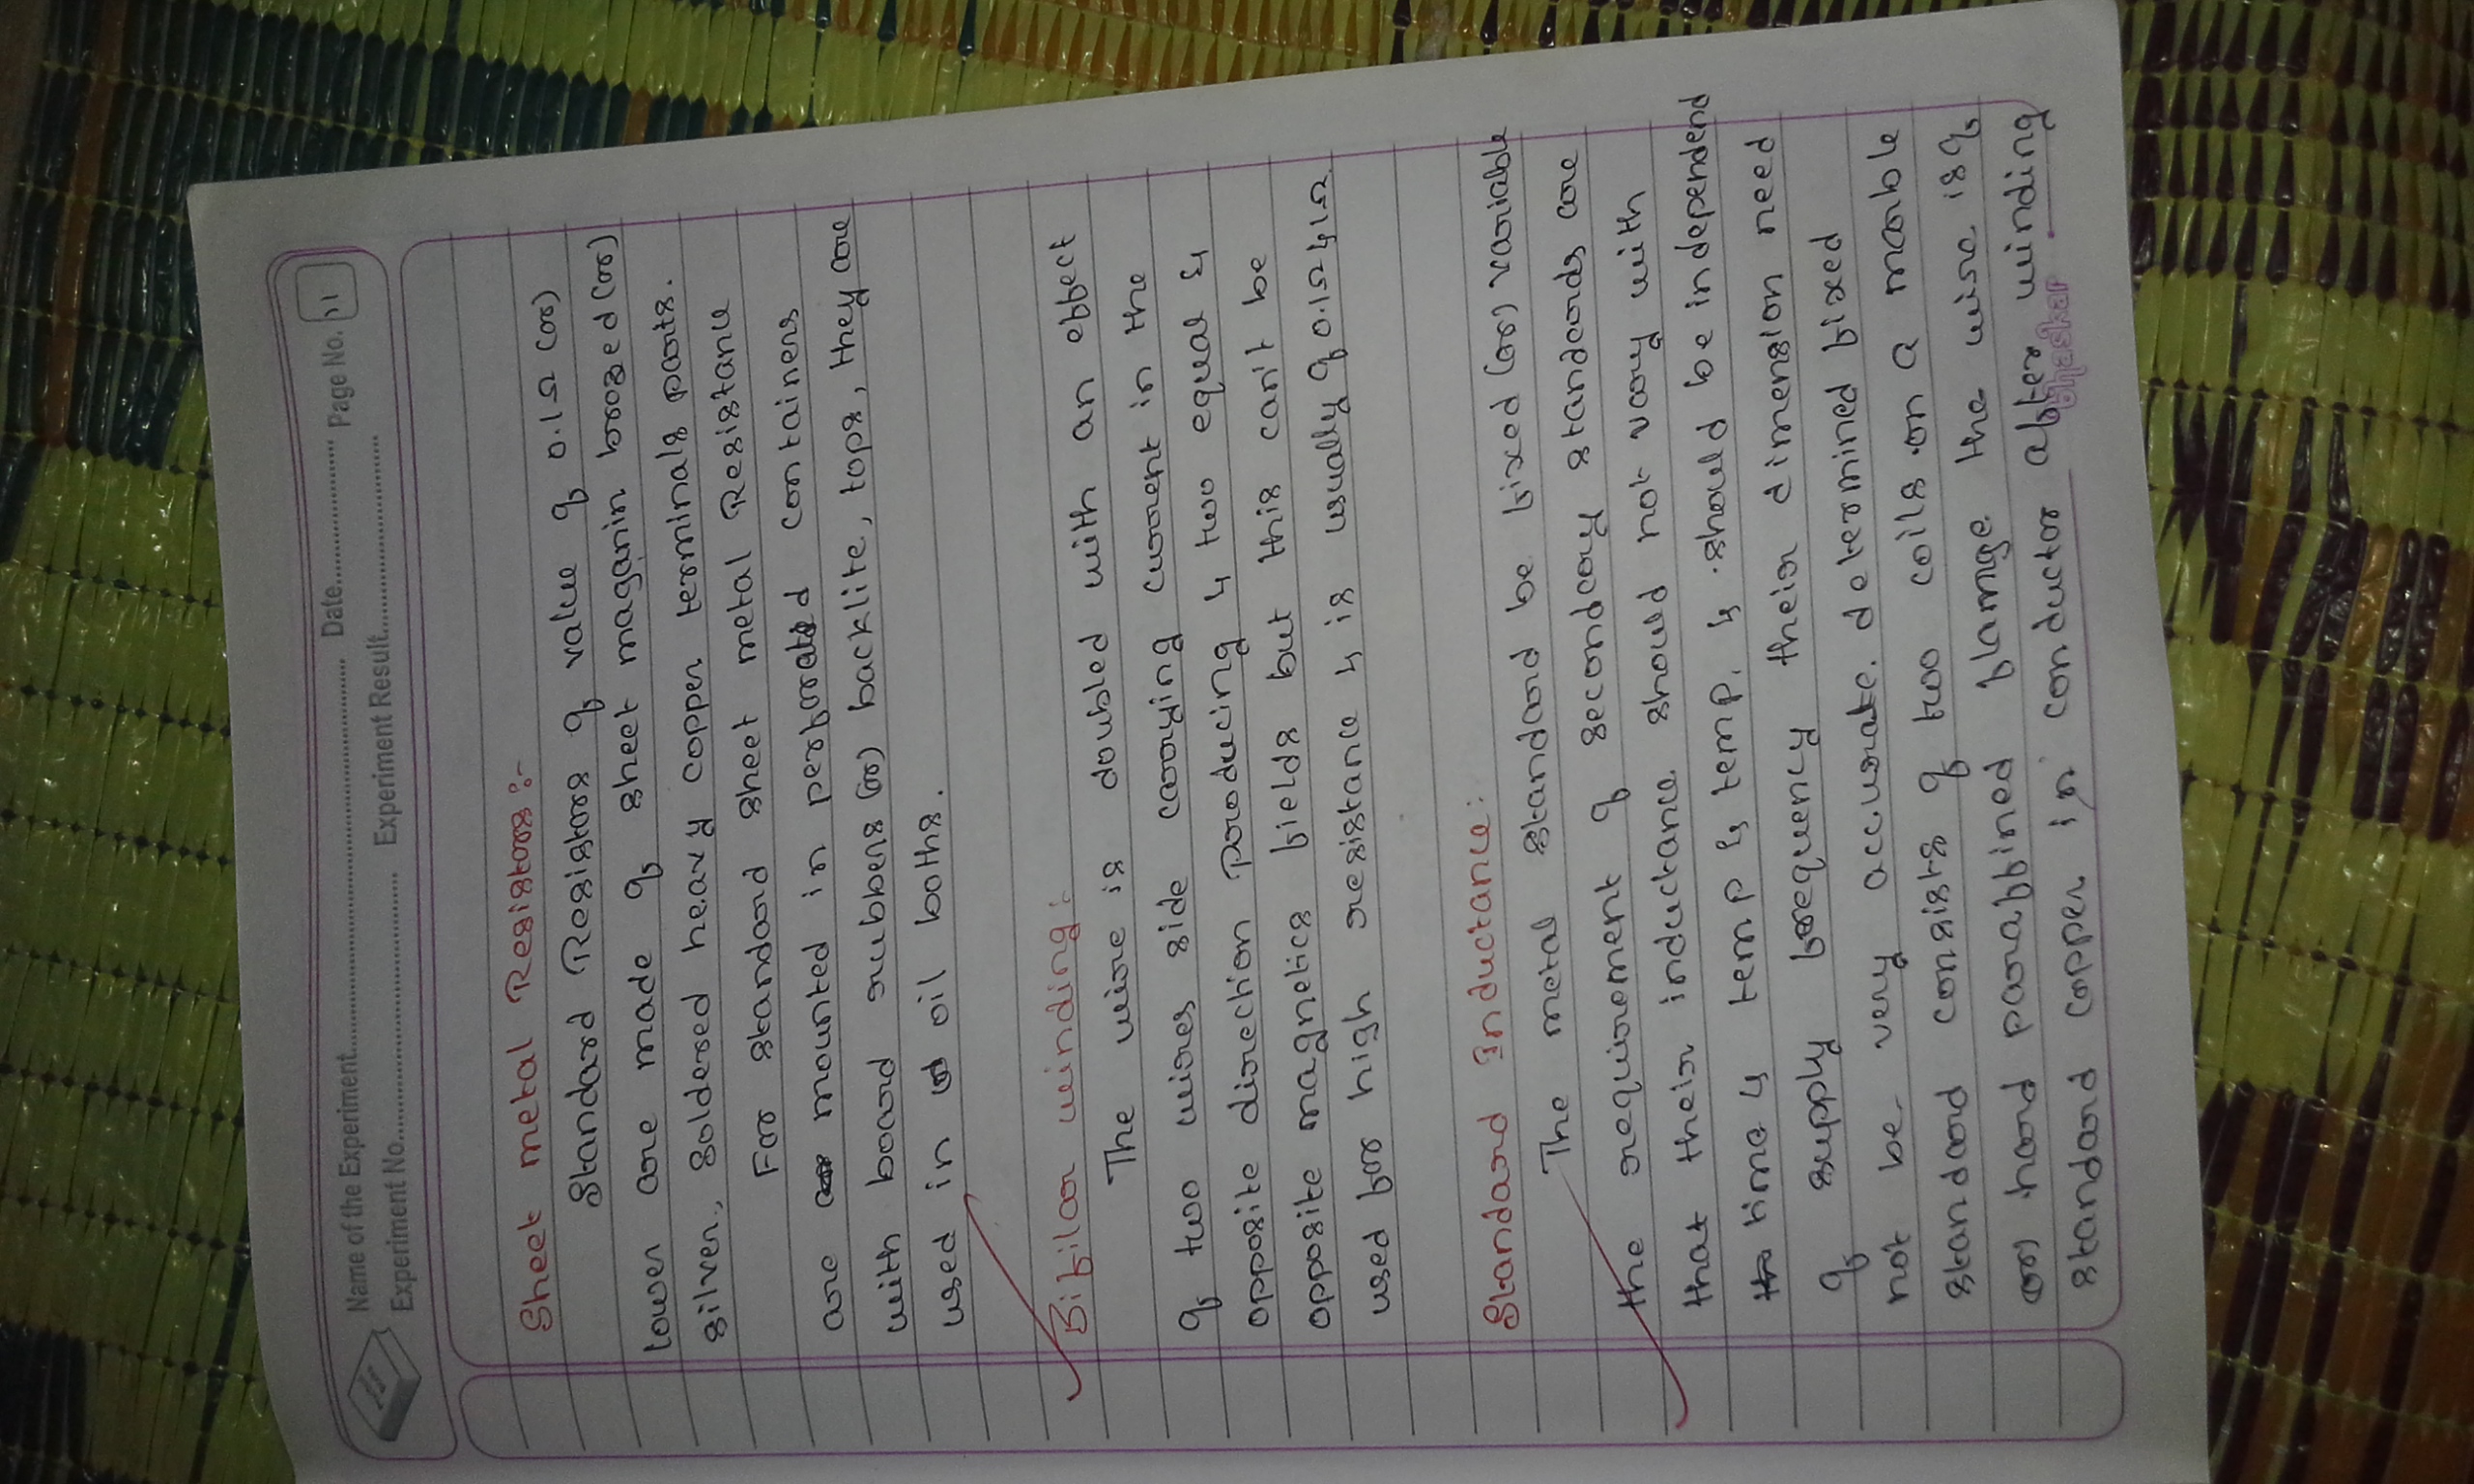 Name of the Experiment.................... Date.................... Page No. 11
Experiment No.................... Experiment Result....................
Sheet metal Resistors:-
Standard Resistors of value of 0.1Ω (or)
lower are made of sheet maganin brozed (or)
silver, Soldered heavy copper terminals parts.
For standard sheet metal Resistance
are mounted in perforated containers
with board rubbers (or) backlite, tops, they are
used in oil boths.
Bifilar winding:-
The wire is doubled with an effect
of two wires side carrying current in the
opposite direction producing & two equal &
opposite magnetics fields but this can't be
used for high resistance & is usually of 0.1Ω & 1Ω.
Standard Inductance:
The metal standard be fixed (or) variable
the requirement of secondary standards are
that their inductance should not vary with
time & temp & temp, & should be independend
of supply frequency their dimension need
not be very accurate. determined fixed
standard consists of two coils on a marble
(or) hard paraffined flange the wire is of
standard copper in conductor after winding
Bhasker